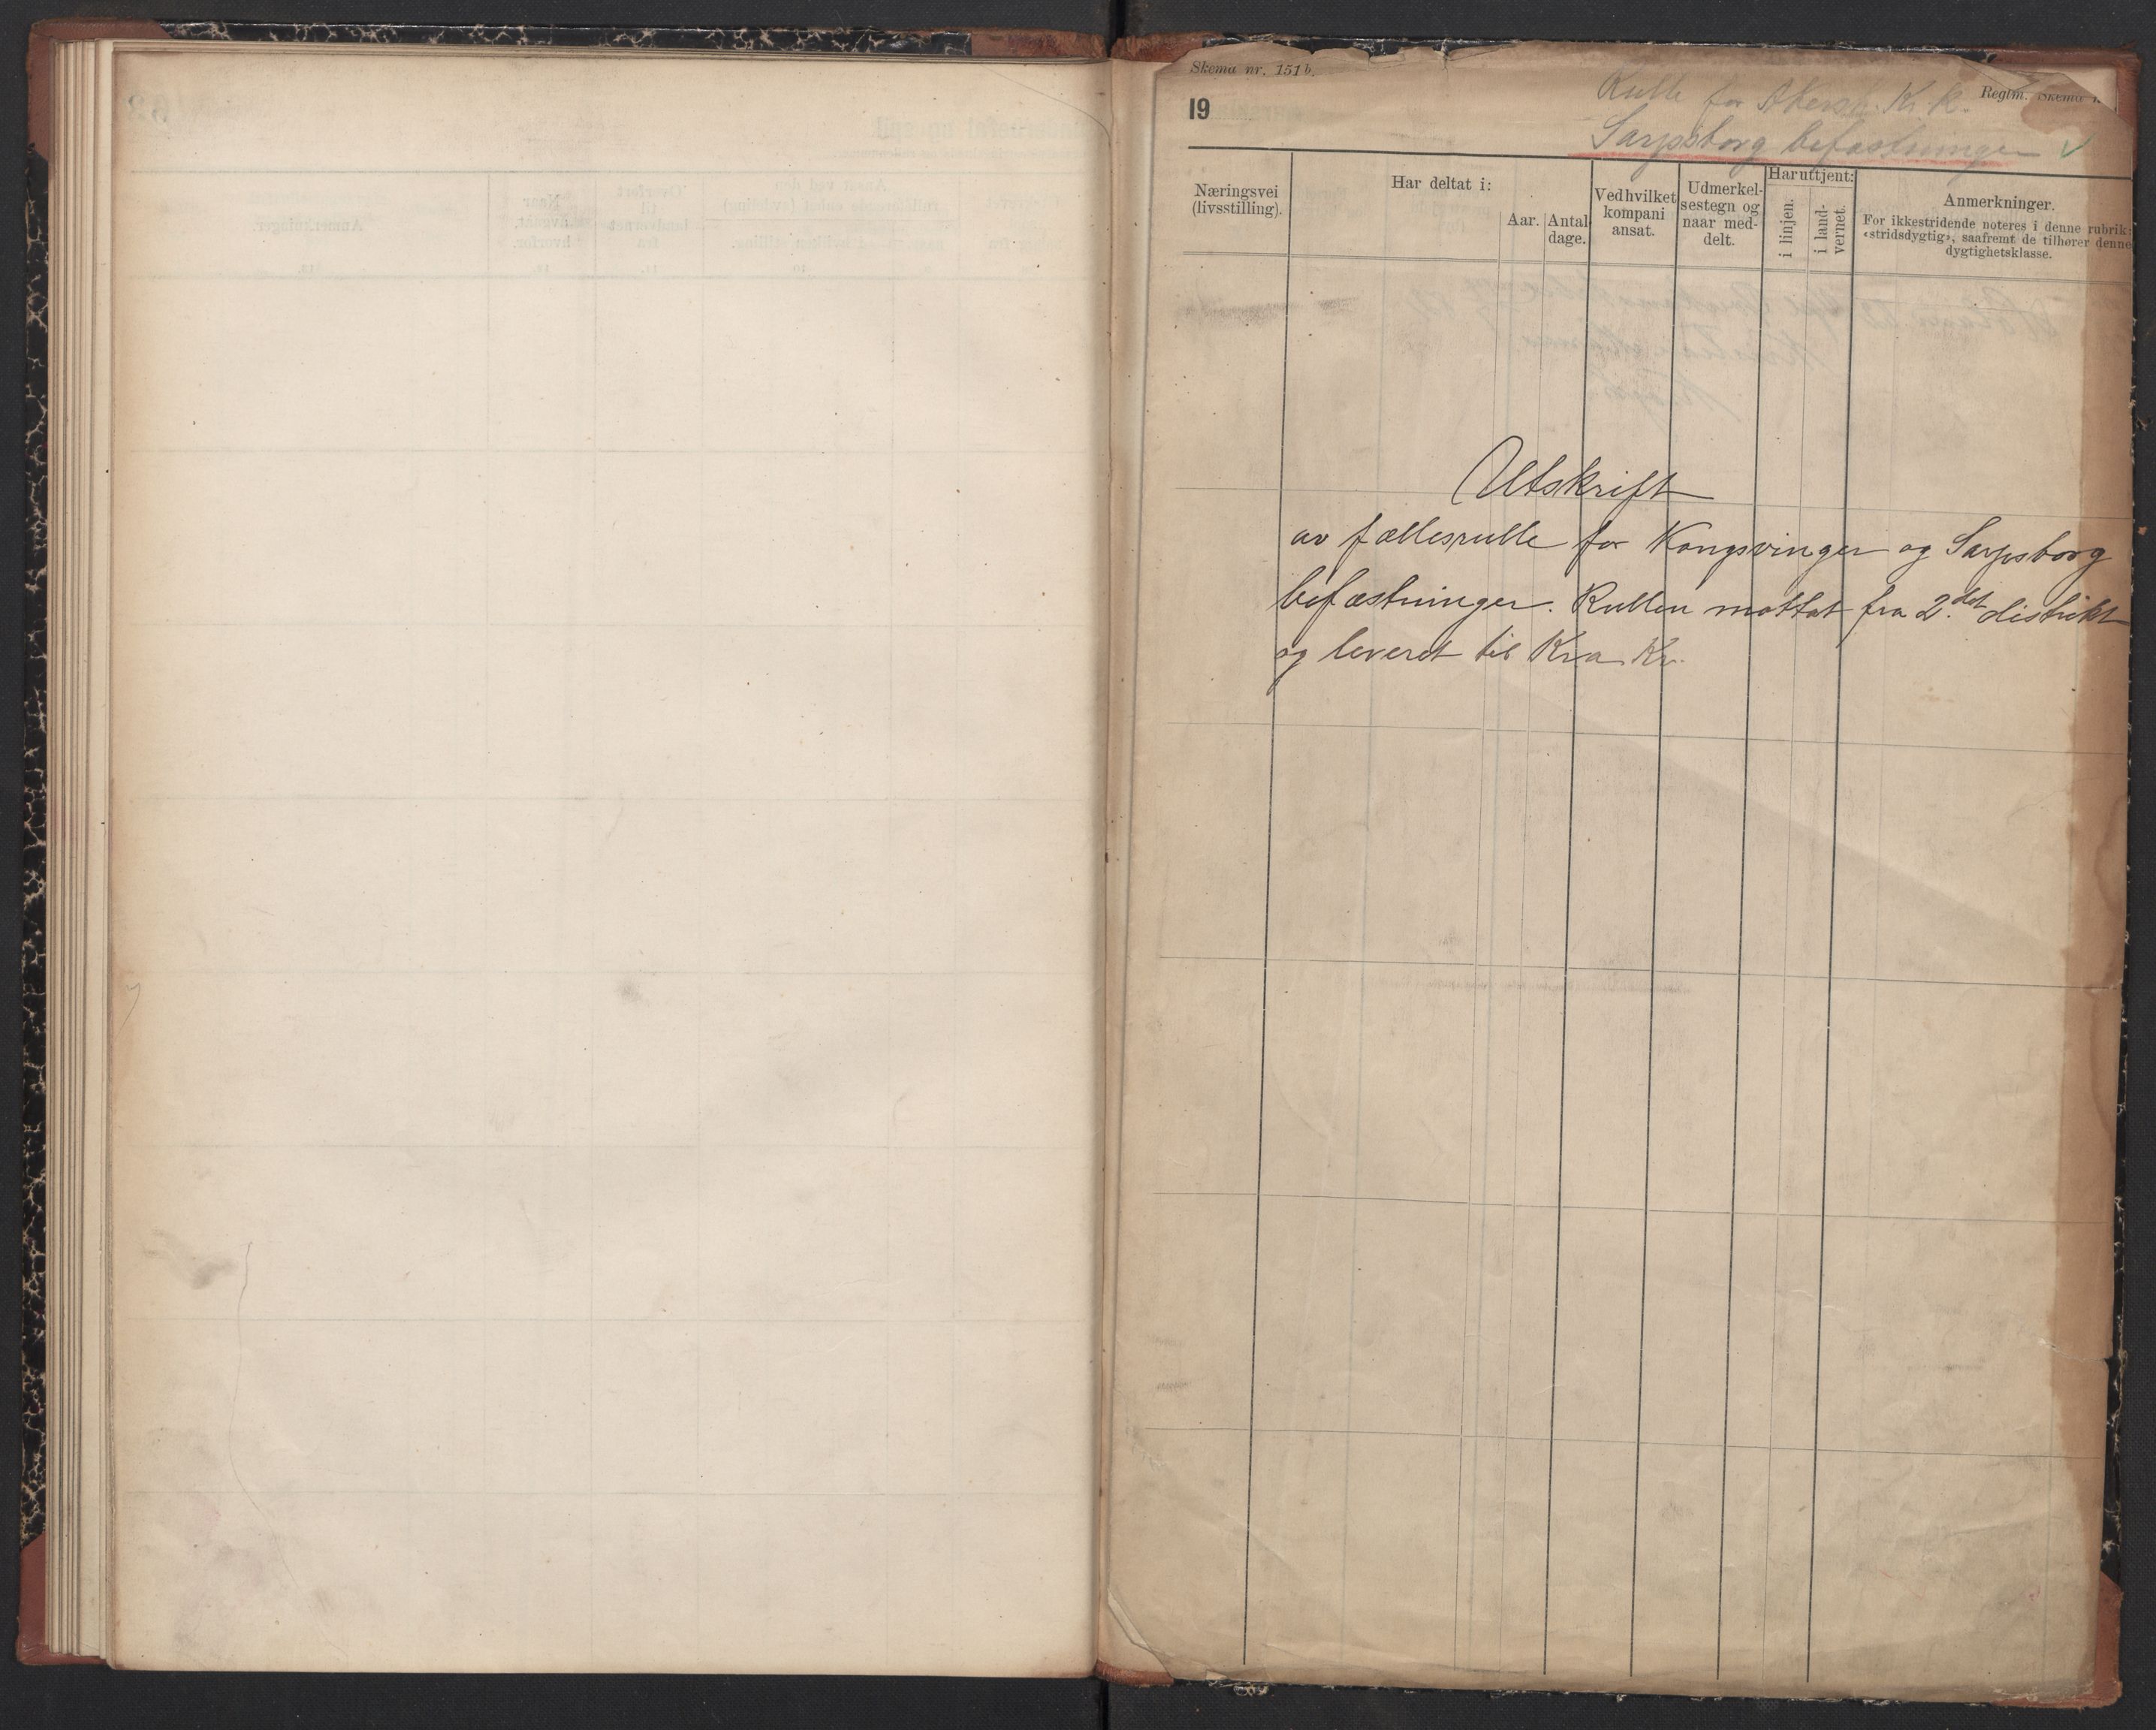 Skema nr. 151 b.
19
Regtm. Skema
Rulle for Akersh. Kr. k.
Sarpsborg befæstninger ✓
Næringsvei
(livsstilling).
Har deltat i:
Aar.
Antal
dage.
Ved hvilket
kompani
ansat.
Udmerkel-
sestegn og
naar med-
delt.
Har uttjent:
i linjen.
i land-
vernet.
Anmerkninger.
For ikkestridende noteres i denne rubrik:
«stridsdygtig», saafremt de tilhører denne
dygtighetsklasse.
Utskrift
av fællesrulle for Kongsvinger og Sarpsborg
befæstninger. Rullen mottat fra 2.det distrikt
og leveret til Kra Kr.